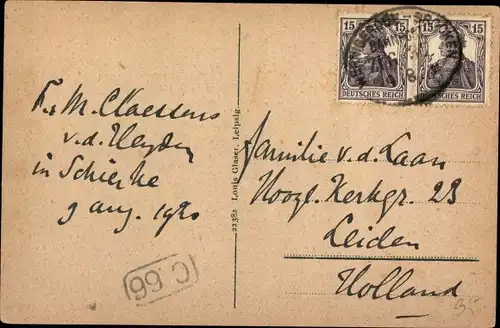 15 15
DEUTSCHES REICH
15 15
DEUTSCHES REICH
BROCKEN
F. M. Claessens
v.d. Heyden
in Schierke
9 aug. 1920
22382 Louis Glaser, Leipzig.
Familie v.d. Laan
Hoogl. Kerkgr. 23
Leiden
Holland
C. 66